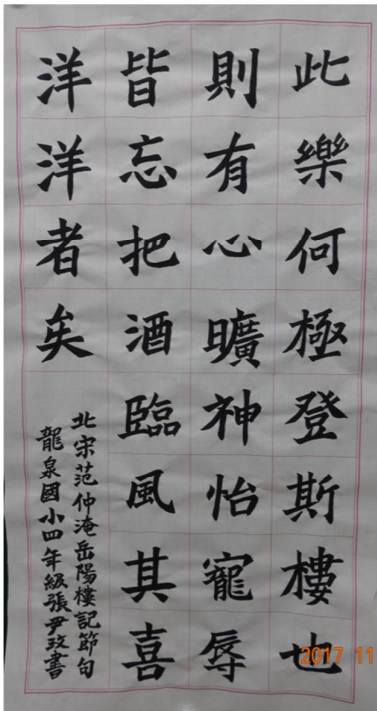 此樂何極登斯樓也
則有心曠神怡寵辱
皆忘把酒臨風其喜
洋洋者矣
北宋范仲淹岳陽樓記節句
龍泉國小四年級張尹玫書
2017 11